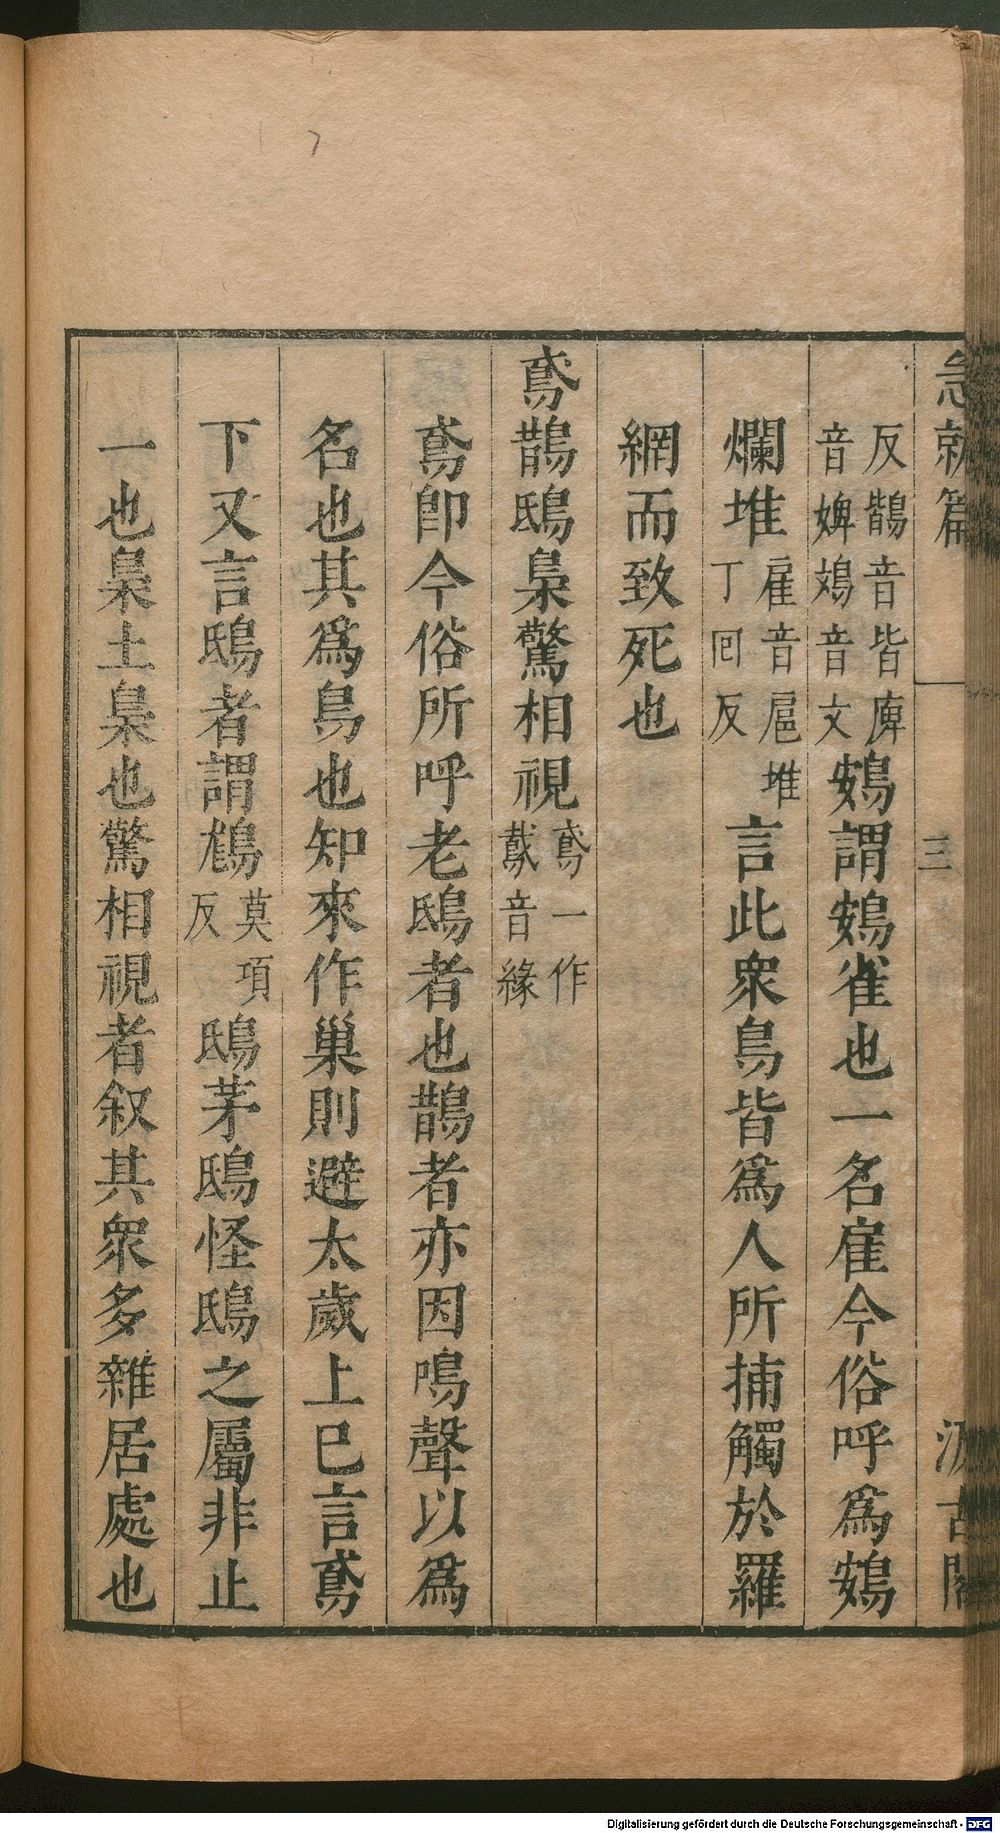 急就篇 三 汲古閣
反鶛音皆庳
音婢鳼音文
鴳謂鴳雀也一名雇今俗呼為鴳
爛堆
雇音扈堆
丁回反
言此眾鳥皆為人所捕觸於羅
網而致死也
鳶鵲鴟梟驚相視
鳶一作
䳒音緣
鳶即今俗所呼老鴟者也鵲者亦因鳴聲以為
名也其為鳥也知來作巢則避太歲上巳言鳶
下又言鴟者謂鵵
莫項
反
鴟茅鴟怪鴟之屬非止
一也梟土梟也驚相視者叙其眾多雜居處也
Digitalisierung gefördert durch die Deutsche Forschungsgemeinschaft - DFG